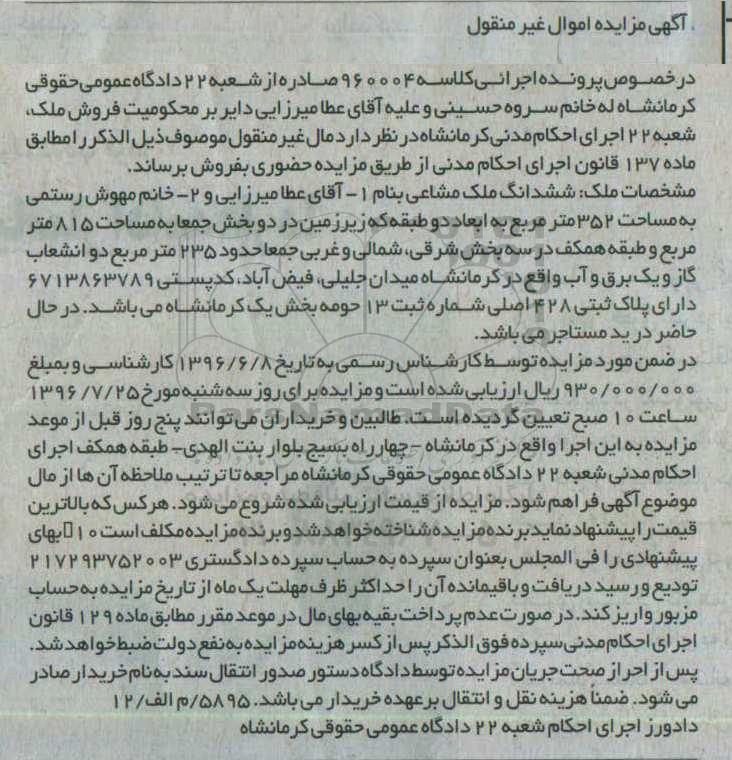 . آگهی مزایده اموال غیر منقول
درخصوص پرونده اجرائی کلاسه ۹۶۰۰۰۴ صادره از شعبه ۲۲ دادگاه عمومی حقوقی
کرمانشاه له خانم سروه حسینی و علیه آقای عطا میرزایی دایر بر محکومیت فروش ملک،
شعبه ۲۲ اجرای احکام مدنی کرمانشاه در نظر دارد مال غیر منقول موصوف ذیل الذکر را مطابق
ماده ۱۳۷ قانون اجرای احکام مدنی از طریق مزایده حضوری بفروش برساند.
مشخصات ملک: ششدانگ ملک مشاعی بنام ۱- آقای عطا میرزایی و ۲- خانم مهوش رستمی
به مساحت ۳۵۲ متر مربع به ابعاد دو طبقه که زیرزمین در دو بخش جمعا به مساحت ۸۱۵ متر
مربع و طبقه همکف در سه بخش شرقی، شمالی و غربی جمعا حدود ۲۳۵ متر مربع دو انشعاب
گاز و یک برق و آب واقع در کرمانشاه میدان جلیلی، فیض آباد، کدپستی ۶۷۱۳۸۶۳۷۸۹
دارای پلاک ثبتی ۴۲۸ اصلی شماره ثبت ۱۳ حومه بخش یک کرمانشاه می باشد. در حال
حاضر در ید مستاجر می باشد.
در ضمن مورد مزایده توسط کارشناس رسمی به تاریخ ۱۳۹۶/۶/۸ کارشناسی و بمبلغ
۹۳۰/۰۰۰/۰۰۰ ریال ارزیابی شده است و مزایده برای روز سه شنبه مورخ ۱۳۹۶/۷/۲۵
ساعت ۱۰ صبح تعیین گردیده است. طالبین و خریداران می توانند پنج روز قبل از موعد
مزایده به این اجرا واقع در کرمانشاه – چهارراه بسیج بلوار بنت الهدی– طبقه همکف اجرای
احکام مدنی شعبه ۲۲ دادگاه عمومی حقوقی کرمانشاه مراجعه تا ترتیب ملاحظه آن ها از مال
موضوع آگهی فراهم شود. مزایده از قیمت ارزیابی شده شروع می شود. هرکس که بالاترین
قیمت را پیشنهاد نماید برنده مزایده شناخته خواهد شد و برنده مزایده مکلف است ۱۰ بهای
پیشنهادی را فی المجلس بعنوان سپرده به حساب سپرده دادگستری ۲۱۷۲۹۳۷۵۲۰۰۳
تودیع و رسید دریافت و باقیمانده آن را حداکثر ظرف مهلت یک ماه از تاریخ مزایده به حساب
مزبور واریز کند. در صورت عدم پرداخت بقیه بهای مال در موعد مقرر مطابق ماده ۱۲۹ قانون
اجرای احکام مدنی سپرده فوق الذکر پس از کسر هزینه مزایده به نفع دولت ضبط خواهد شد.
پس از احراز صحت جریان مزایده توسط دادگاه دستور صدور انتقال سند به نام خریدار صادر
می شود. ضمناً هزینه نقل و انتقال برعهده خریدار می باشد. ۵۸۹۵/م الف/۱۲
دادورز اجرای احکام شعبه ۲۲ دادگاه عمومی حقوقی کرمانشاه
ParsNamadData